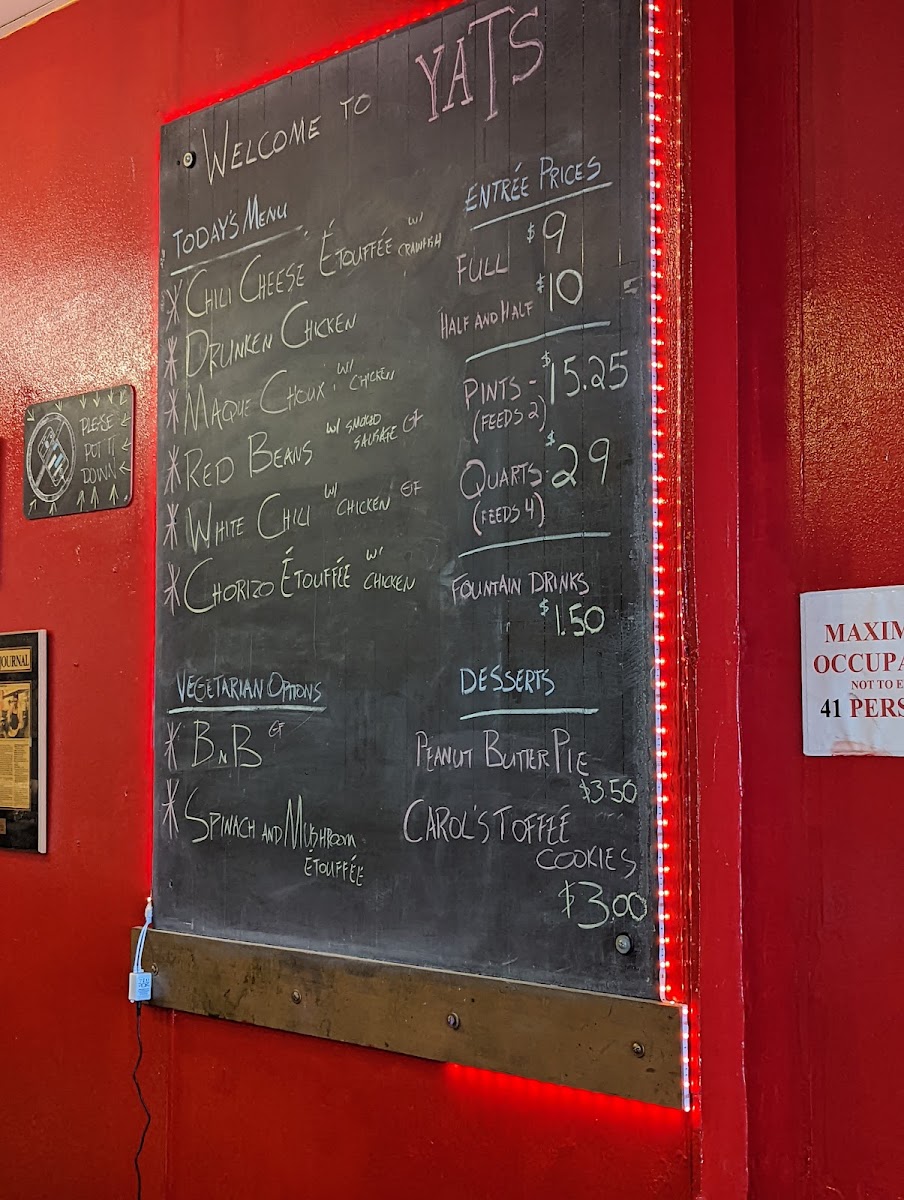 WELCOME TO YATS
TODAY'S MENU
CHILI CHEESE ÉTOUFFÉE W/ CRAWFISH
DRUNKEN CHICKEN
MAQUE CHOUX W/ CHICKEN
RED BEANS W/ SMOKED SAUSAGE GF
WHITE CHILI W/ CHICKEN GF
CHORIZO ÉTOUFFÉE W/ CHICKEN
VEGETARIAN OPTIONS
B N B GF
SPINACH AND MUSHROOM
ÉTOUFFÉE
ENTRÉE PRICES
FULL $9
HALF AND HALF $10
PINTS - $15.25
(FEEDS 2)
QUARTS - $29
(FEEDS 4)
FOUNTAIN DRINKS
$1.50
DESSERTS
PEANUT BUTTER PIE
$3.50
CAROL'S TOFFÉE
COOKIES
$3.00
PLEASE
PUT IT
DOWN
JOURNAL
MAXIM
OCCUPA
NOT TO E
41 PERS